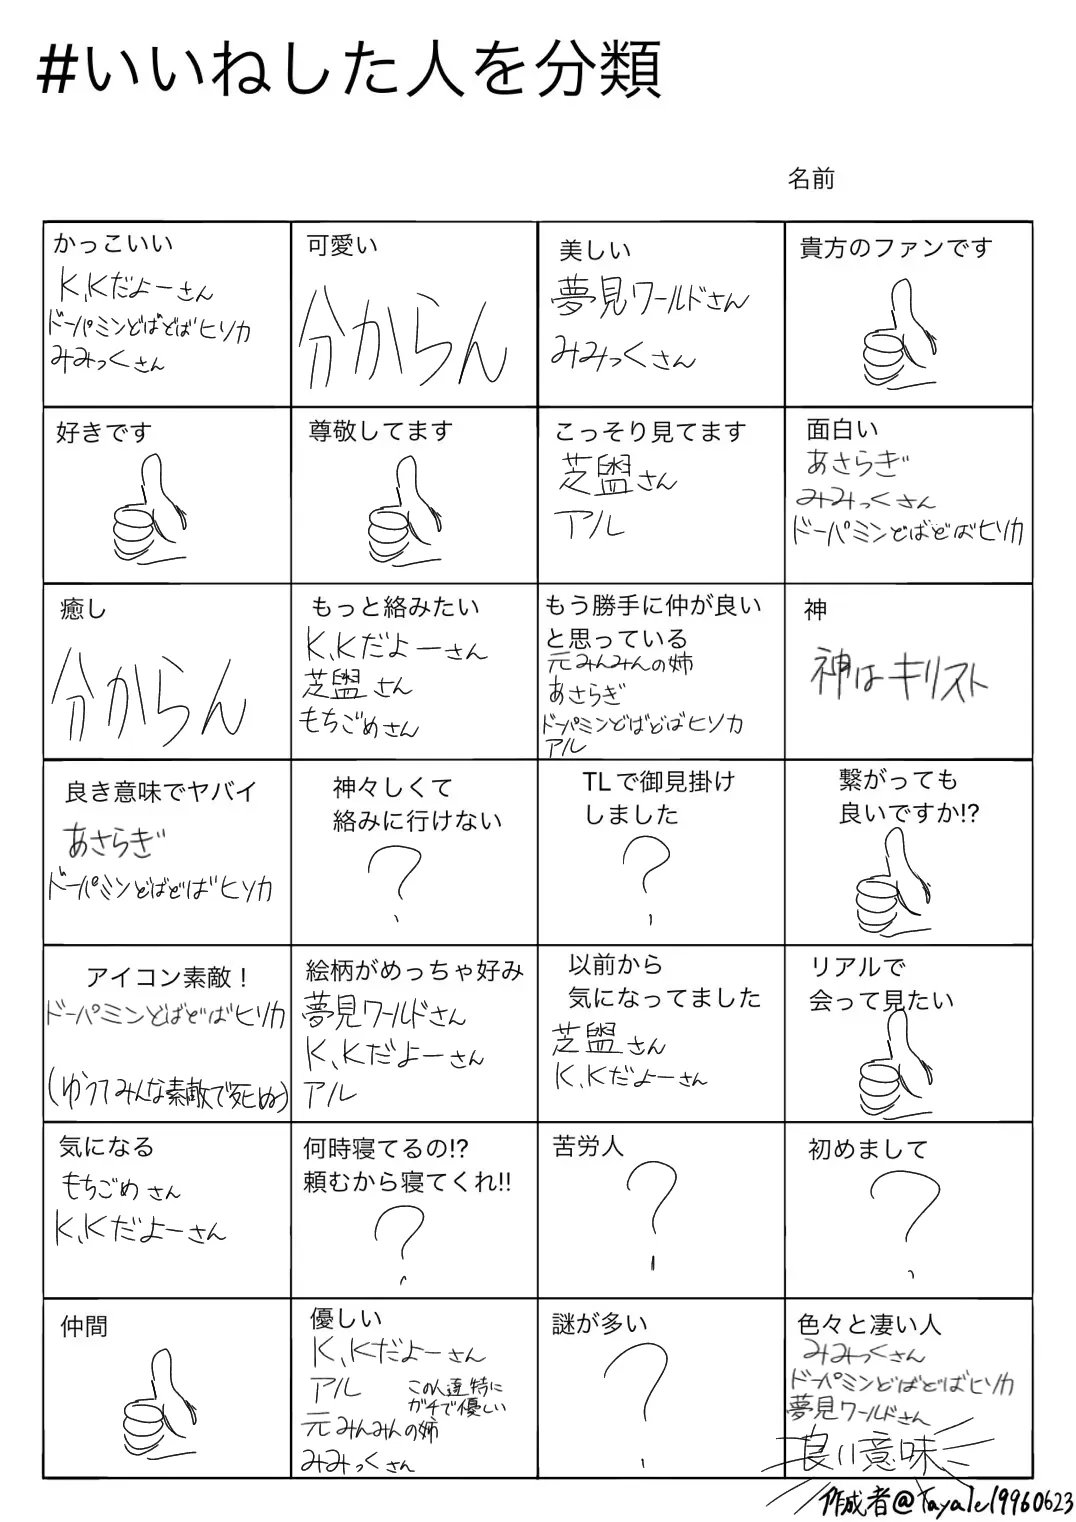 #いいねした人を分類
名前
かっこいい
K.Kだよーさん
ドーパミンどばどばヒソカ
みみっくさん
可愛い
分からん
美しい
夢見ワールドさん
みみっくさん
貴方のファンです
好きです
尊敬してます
こっそり見てます
芝盥さん
アル
面白い
あさらぎ
みみっくさん
ドーパミンどばどばヒソカ
癒し
分からん
もっと絡みたい
K.Kだよーさん
芝盥さん
もちごめさん
もう勝手に仲が良い
と思っている
元みんみんの姉
あさらぎ
ドーパミンどばどばヒソカ
アル
神
神はキリスト
良き意味でヤバイ
あさらぎ
ドーパミンどばどばヒソカ
神々しくて
絡みに行けない
?
TLで御見掛け
しました
?
繋がっても
良いですか!?
アイコン素敵!
ドーパミンどばどばヒソカ
(ゆうてみんな素敵で死ぬ)
絵柄がめっちゃ好み
夢見ワールドさん
K.Kだよーさん
アル
以前から
気になってました
芝盥さん
K.Kだよーさん
リアルで
会って見たい
気になる
もちごめさん
K.Kだよーさん
何時寝てるの!?
頼むから寝てくれ!!
?
苦労人
?
初めまして
?
仲間
優しい
K.Kだよーさん
アル
この人達特に
ガチで優しい
元みんみんの姉
みみっくさん
謎が多い
?
色々と凄い人
みみっくさん
ドーパミンどばどばヒソカ
夢見ワールドさん
良い意味
作成者@Tayale19960623